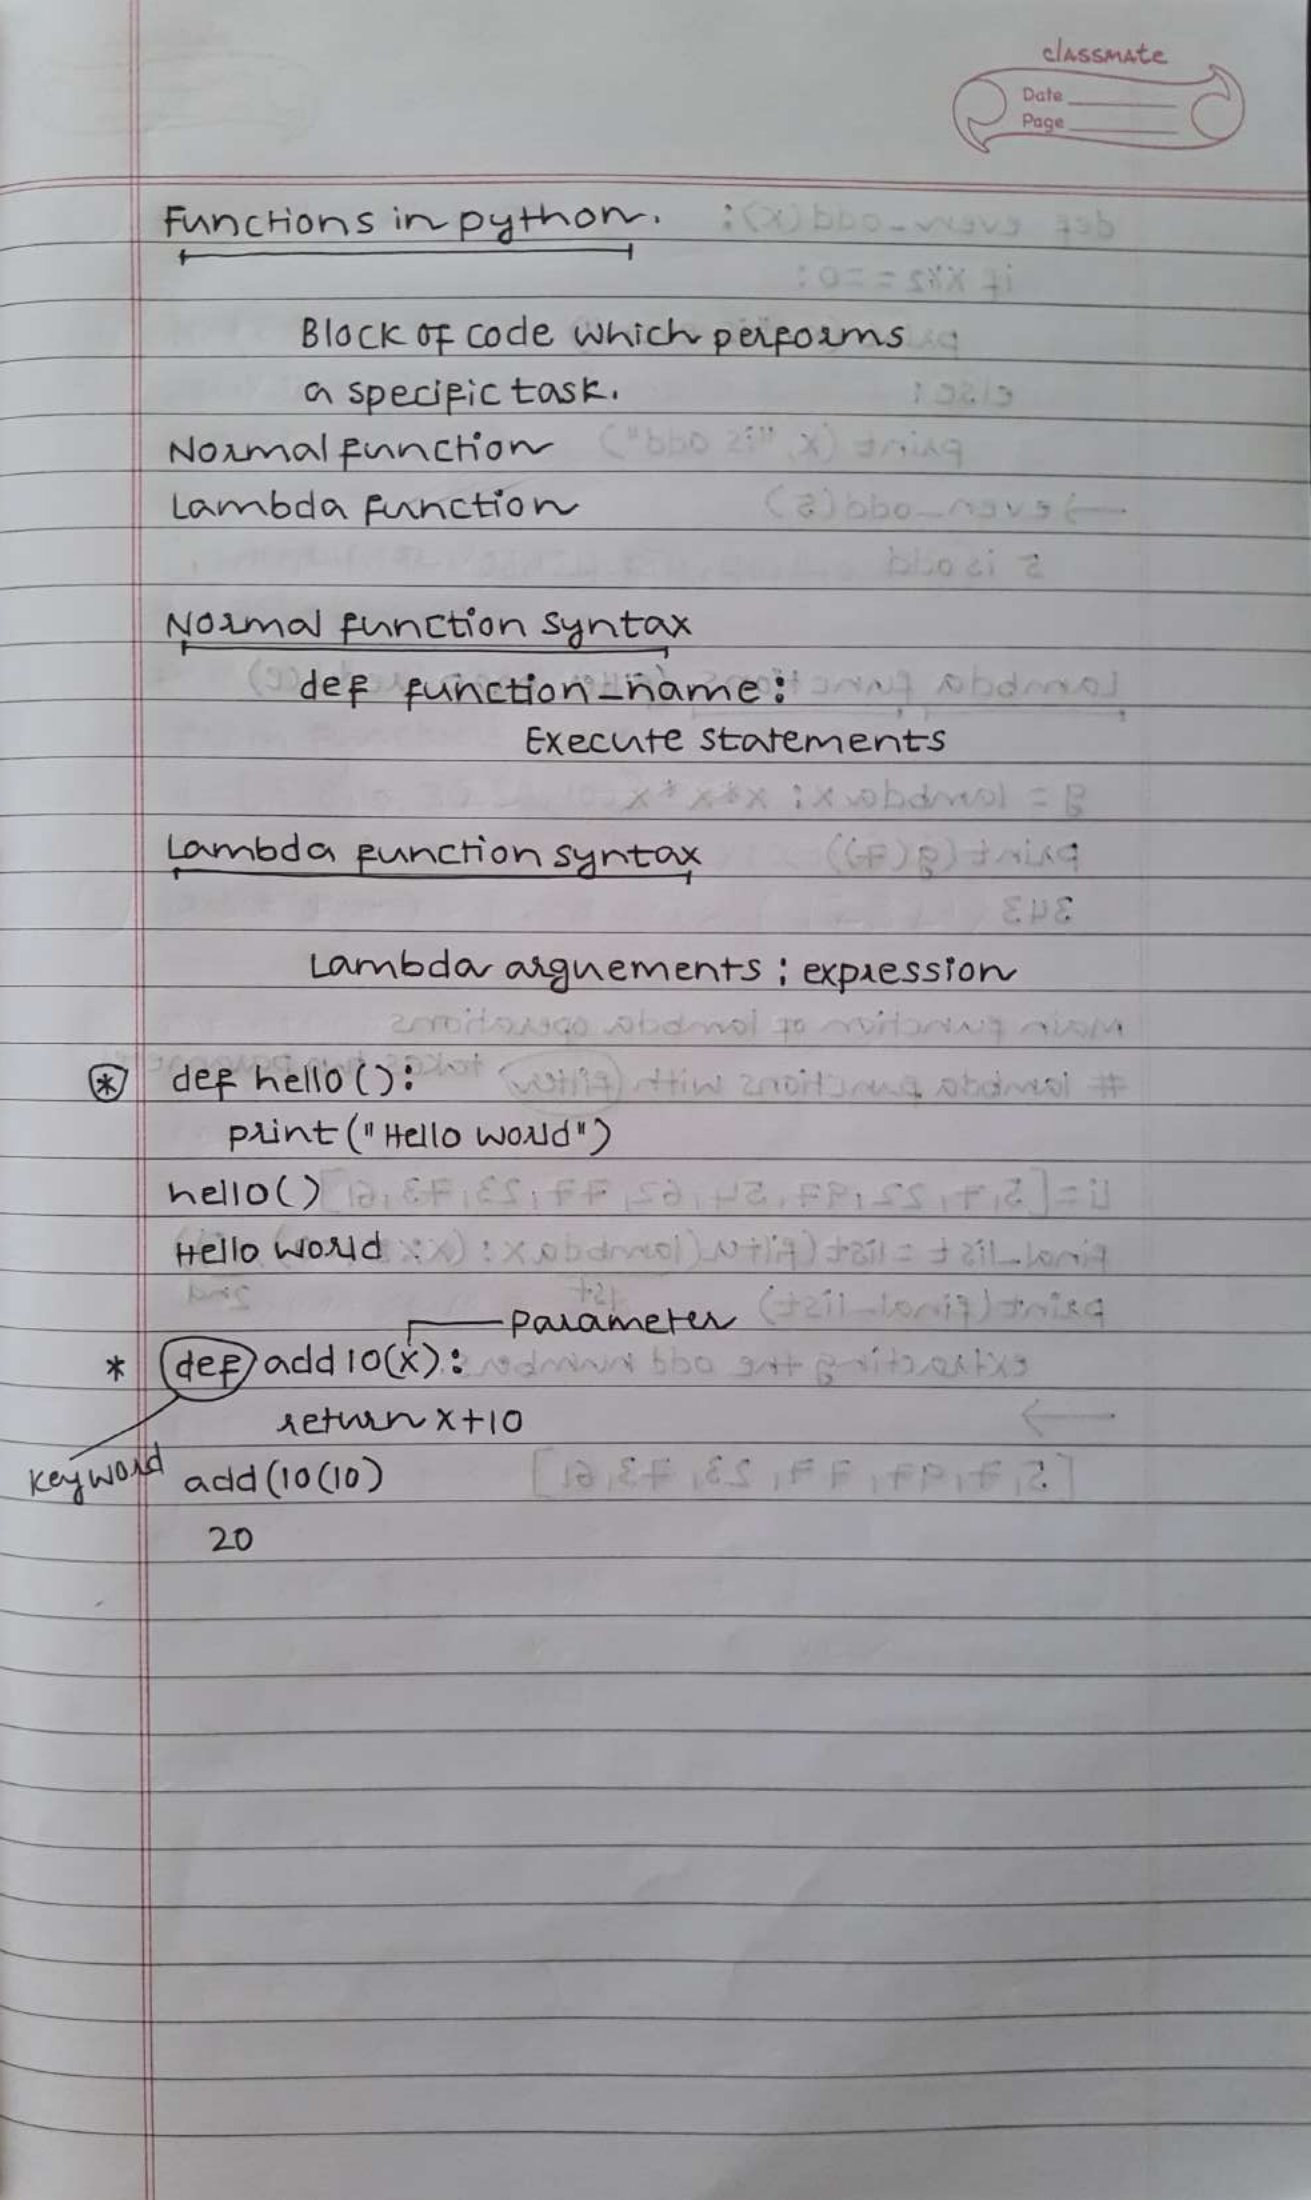 classmate
Date
Page
Functions in python.
Block of code which performs
a specific task.
Normal function
Lambda function
Normal function syntax
def function_name:
Execute statements
Lambda function syntax
Lambda arguements : expression
* def hello():
print("Hello world")
hello()
Hello world
Parameter
* def add10(x):
return x+10
keyword
add(10(10)
20